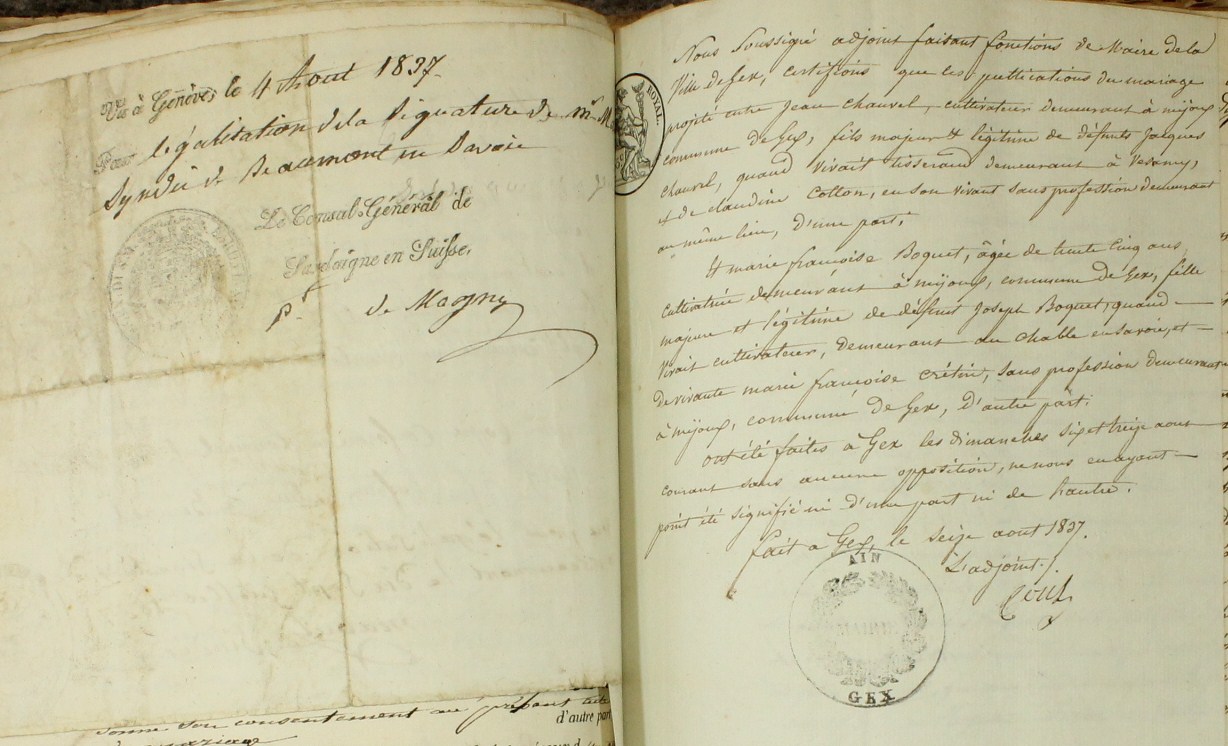 Vu à Genève, le 4 Aout 1837.
Pour légalisation de la signature de Mr. M
Syndic de Beaumont en Savoie
Le Consul-Général de
Sardaigne en Suisse,
pr. de Magny
donne son consentement au présent
d'autre part
ROYAL
Nous soussigné adjoint faisant fonctions de Maire de la
Ville de Gex, certifions que les publications du mariage
projeté entre Jean Chauvel, cultivateur demeurant à mijoux
commune de Gex, fils majeur et légitime de défunts Jacques
Chauvel, quand vivait tisserand demeurant à Vesancy,
et de claudine Cotton, en son vivant sans profession demeurant
au même lieu, d'une part.
Et marie françoise Boquet, âgée de trente cinq ans,
cultivatrice demeurant à mijoux, commune de Gex, fille
majeure et légitime de défunt Joseph Boquet, quand
vivait cultivateur, demeurant au chable en Savoie, et
de vivante marie françoise crétin, sans profession demeurant
à mijoux, commune de Gex, d'autre part.
ont été faites à Gex les dimanches six et treize aout
courant sans aucune opposition, ne nous en ayant
point été signifié ni d'une part ni de l'autre.
fait à Gex, le seize aout 1837.
L'adjoint.
AIN
MAIRIE
GEX